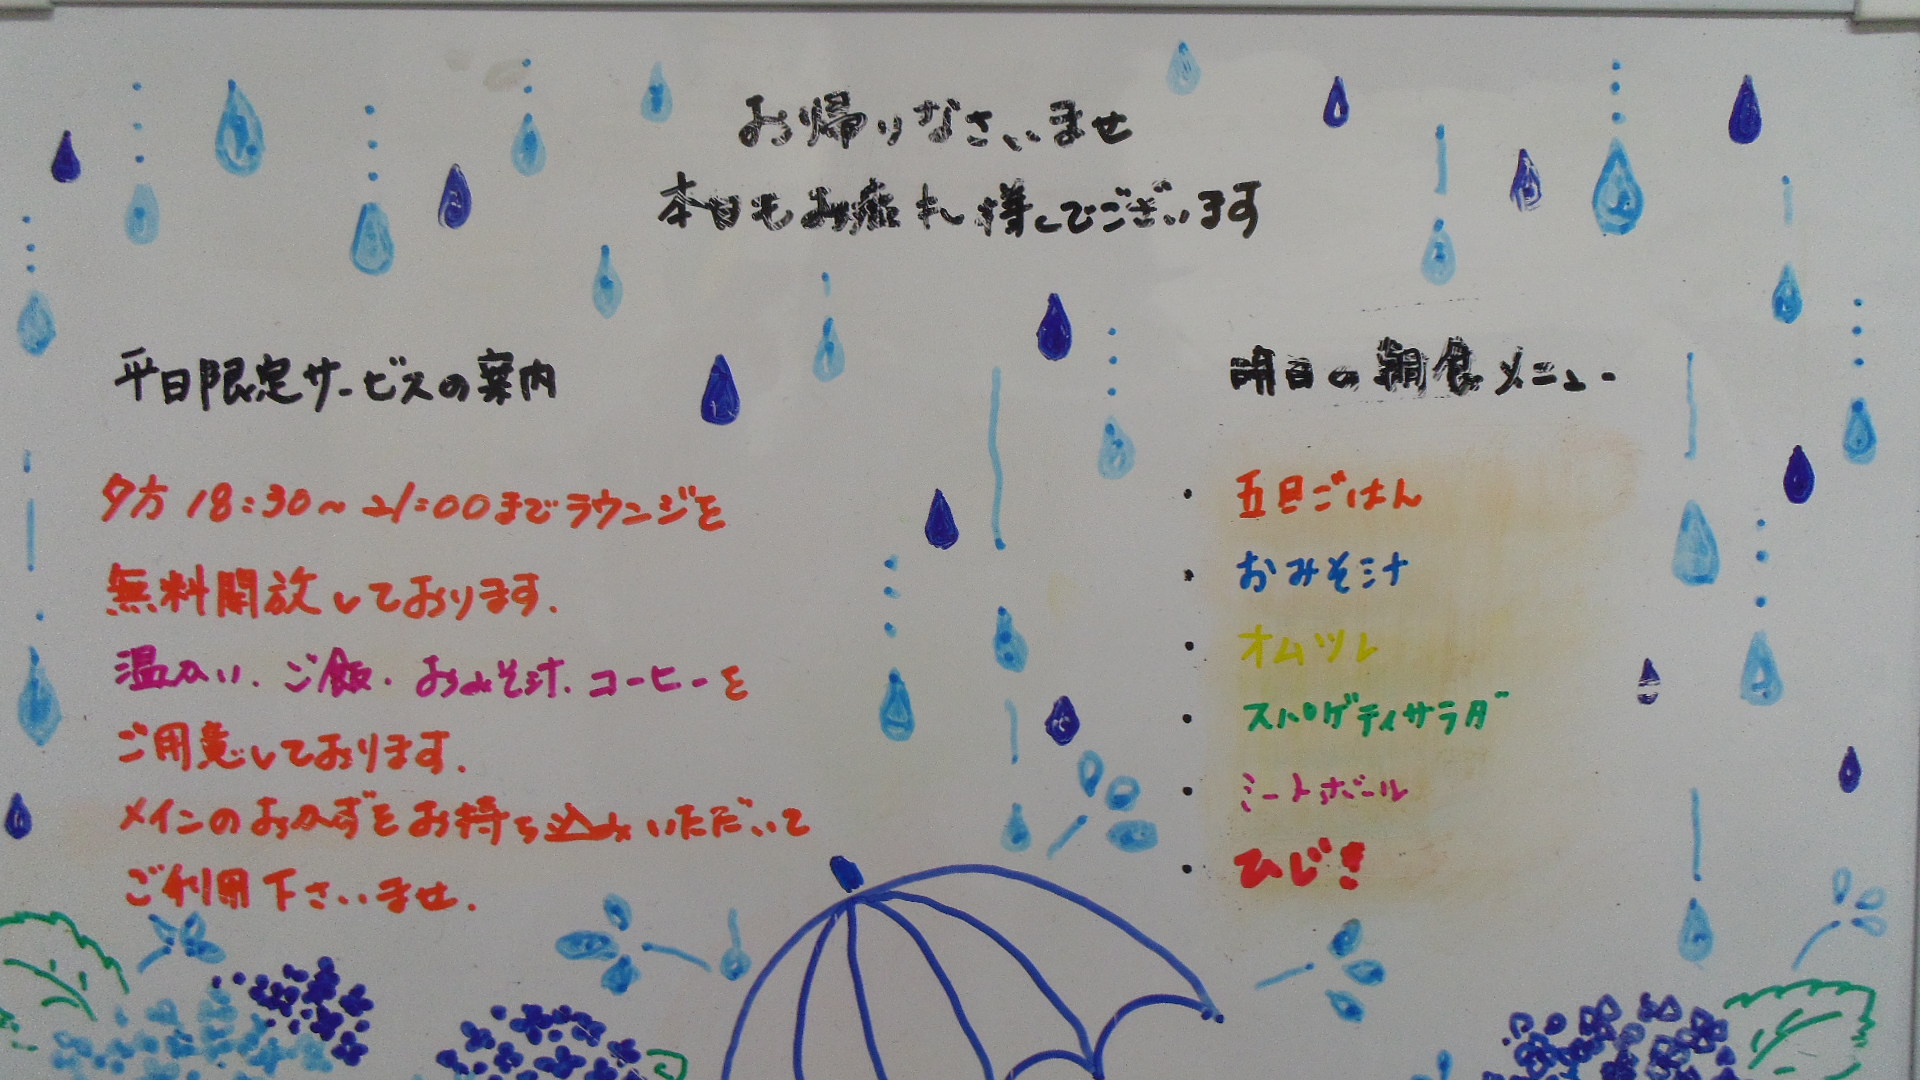 お帰りなさいませ
本日もお疲れ様でございます
平日限定サービスの案内
夕方 18:30〜21:00までラウンジを
無料開放しております.
温かい.ご飯.おみそ汁.コーヒーを
ご用意しております.
メインのおかずをお持ち込みいただいて
ご利用下さいませ.
明日の朝食メニュー
・五目ごはん
・おみそ汁
・オムツレ
・スパゲティサラダ
・ミートボール
・ひじき